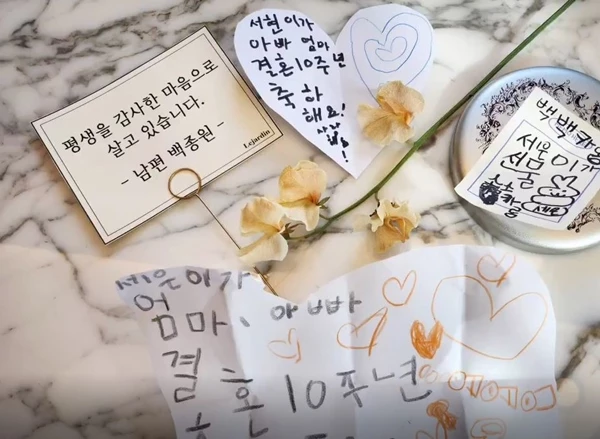 평생을 감사한 마음으로
살고 있습니다.
- 남편 백종원 -
Lejardin
서현이가
아빠 엄마
결혼10주년
축하
해요!
서은이가
선물
서은이가
엄마、아빠
결혼10주년